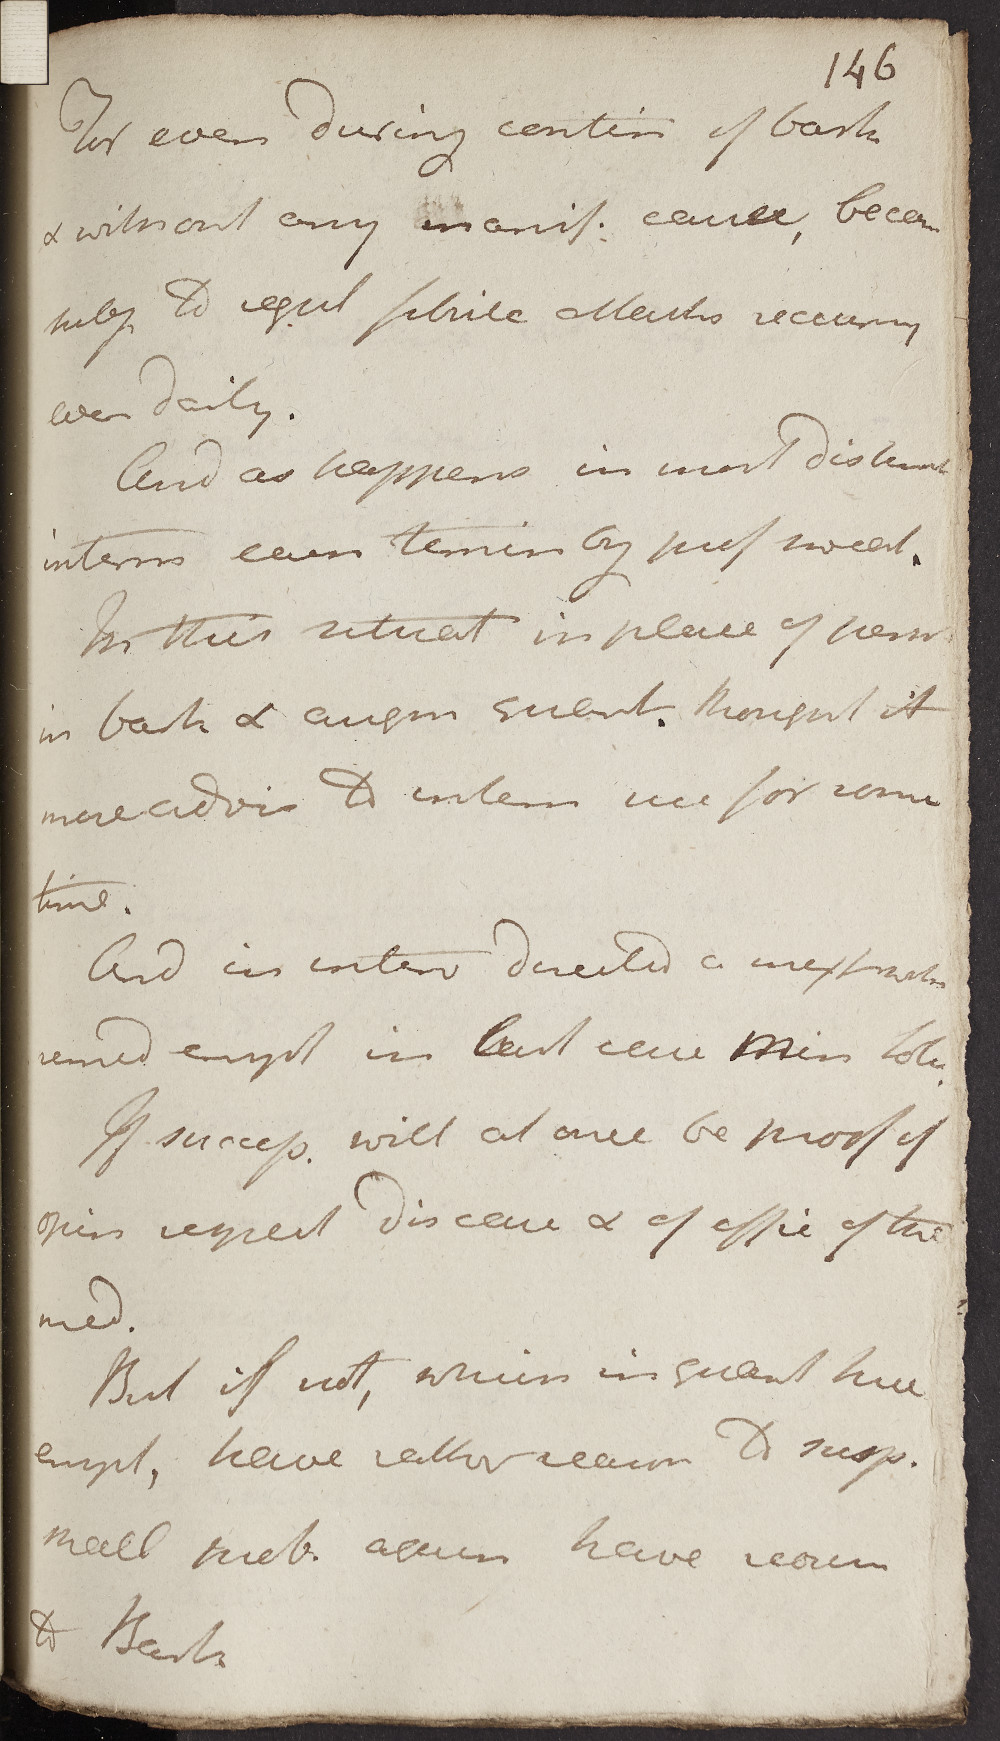 146
For even during contin of bark
& without any manif. cause, becam
subj to regul febrile attacks recurring
even daily.
And as happens in most distinct
interm even termin by prof sweat.
In this situat in place of persev
in bark & augm quant. thought it
more advis to interm use for some
time.
And in interv directed a
remed empl in last case Min Solu.
If success. will at once be proof of
opin respect disease & of effic of the
med.
But if not, which in quant here
empl, have rather reason to susp.
shall prob. again have recour
to Bark